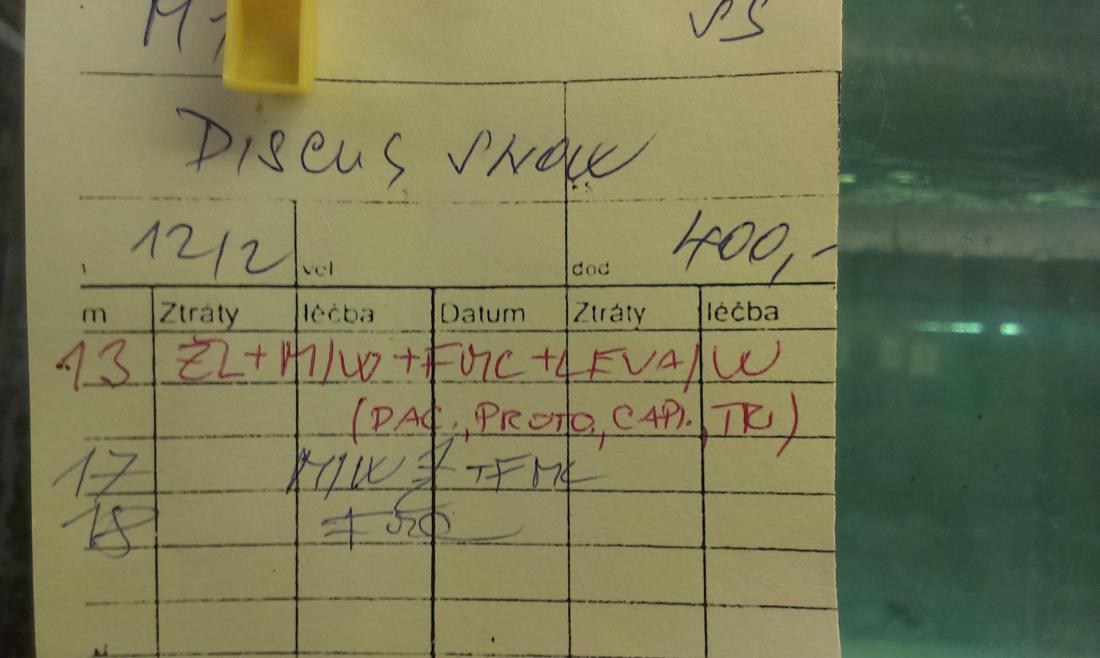 VS
DISCUS SNOW
12/2 vel dod 400,-
m Ztráty léčba Datum Ztráty léčba
13 ŽL+M/W+FMC+LEVA/W
(DAC., PROTO, CAPI., TRI)
17 M/W +FMC
18